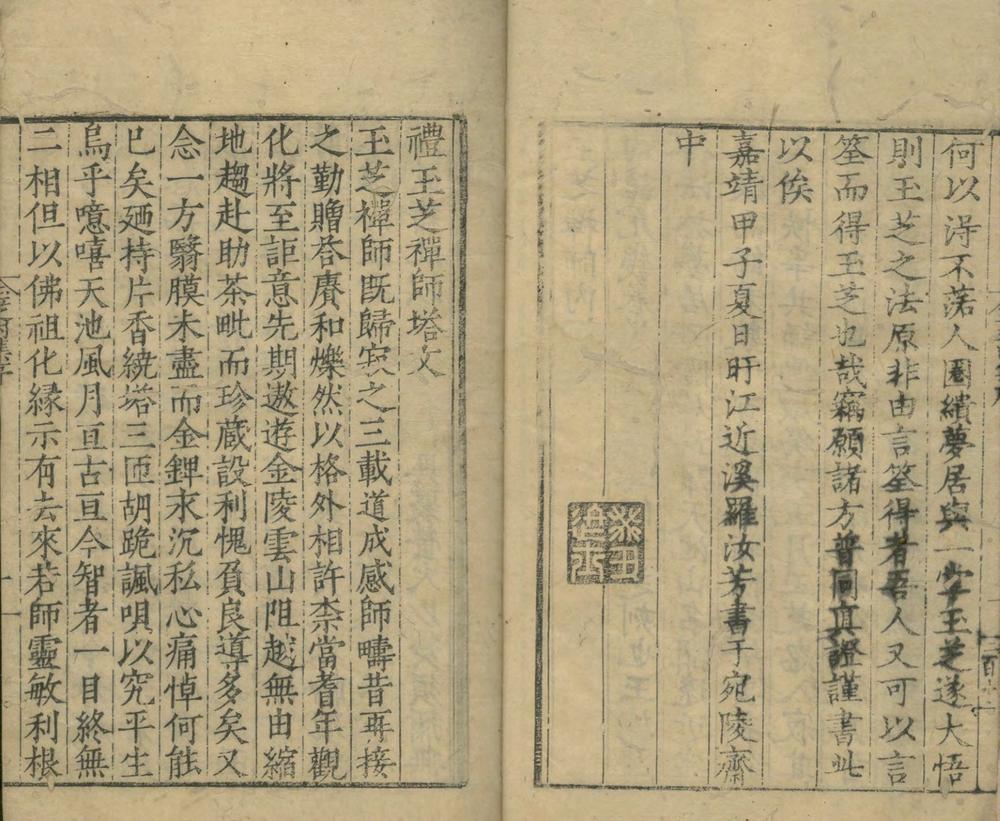 何以淂不落人圈繢夢居與一字玉芝遂大悟
則玉芝之法原非由言筌得者吾人又可以言
筌而得玉芝也哉竊願諸方普同眞證謹書此
以俟
嘉靖甲子夏日盱江近溪羅汝芳書于宛陵齋
中
禮玉芝禪師塔文
玉芝禪師既歸寂之三載道成感師疇昔再接
之勤贈荅賡和爍然以格外相許柰當耆年觀
化將至詎意先期遨遊金陵雲山阻越無由縮
地趨赴助茶毗而珍蔵設利愧負良導多矣又
念一方翳膜未盡而金錍永沉私心痛悼何能
已矣廼持片香繞塔三匝胡跪諷唄以究平生
烏乎噫嘻天池風月亘古亘今智者一目終無
二相但以佛祖化緣示有去來若師靈敏利根